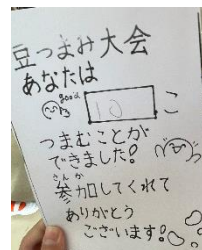 豆つまみ大会
あなたは
good
10 こ
つまむことが
できました!
さんか
参加してくれて
ありがとう
ございます!